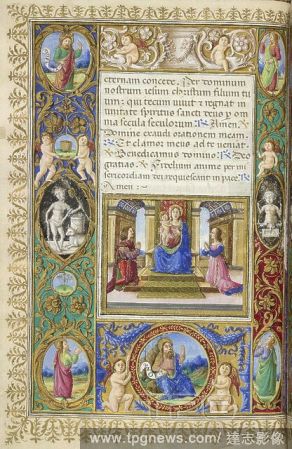 eternam concete. Per dominum
nostrum iesum christum filium tu
um: qui tecum uiuit ⁊ regnat in
unitate spiritus sancti deus p om
nia secula seculorum. Amen.
Domine exaudi orationem meam.
Et clamor meus ad te ueniat.
Benedicamus domino. Deo
gratias. Fidelium anime per mi
sericordiam dei requiescant in pace
Amen:
www.tpgnews.com / 達志影像